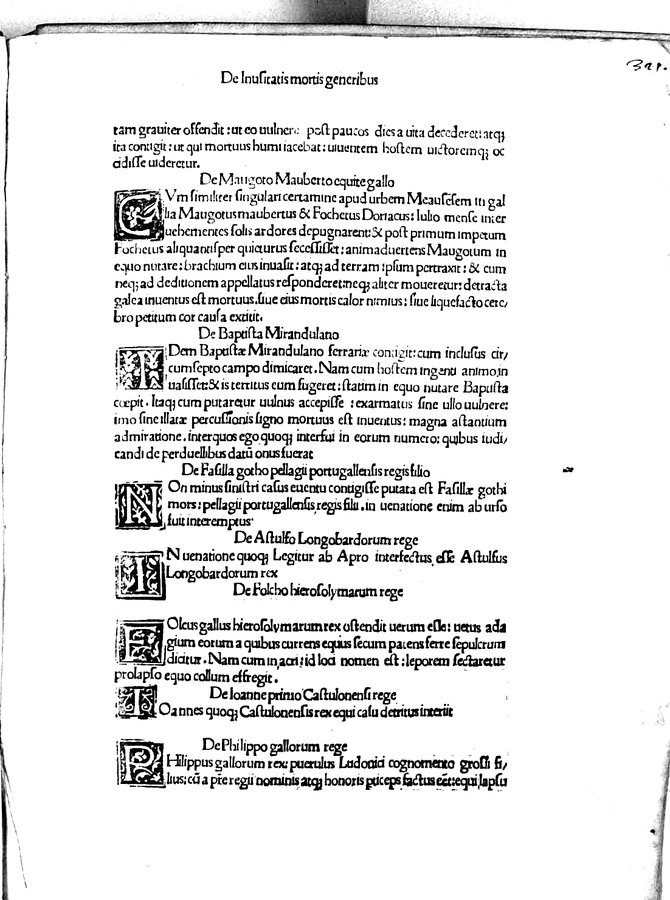 De Inusitatis mortis generibus
321.
tam grauiter offendit: ut eo uulnere post paucos dies a uita decederet: atq;
ita contigit: ut qui mortuus humi iacebat: uiuentem hostem uictoremq; oc
cidisse uideretur.
De Maugoto Mauberto equite gallo
CVm similiter singulari certamine apud urbem Meausesem in gal
lia Maugotus maubertus & Fochetus Doriacus: Iulio mense inter
uehementes solis ardores depugnarent: & post primum impetum
Fochetus aliquantisper quieturus secessisset: animaduertens Maugotum in
equo nutare: brachium eius inuasit: atq; ad terram ipsum pertraxit: & cum
neq; ad deditionem appellatus responderet: neq; aliter moueretur: detracta
galea inuentus est mortuus. siue eius mortis calor nimius: siue liquefacto cere/
bro petitum cor causa extitit.
De Baptista Mirandulano
IDem Baptistæ Mirandulano ferrariæ contigit: cum inclusus cir/
cumsepto campo dimicaret. Nam cum hostem ingenti animo, in
uasisset: & is territus eum fugeret: statim in equo nutare Baptista
cœpit. Itaq; cum putaretur uulnus accepisse: exarmatus sine ullo uulnere:
imo sine illatæ percussionis signo mortuus est inuentus: magna astantium
admiratione. inter quos ego quoq; interfui in eorum numero: quibus iudi/
candi de perduellibus datū onus fuerat
De Fasilla gotho pellagii portugallensis regis filio
NOn minus sinistri casus euentu contigisse putata est Fasillæ gothi
mors: pellagii portugallensis regis filii. in uenatione enim ab urso
fuit interemptus
De Astulfo Longobardorum rege
IN uenatione quoq; Legitur ab Apro interfectus esse Astulfus
Longobardorum rex
De Folcho hierosolymarum rege
FOlcus gallus hierosolymarum rex ostendit uerum esse: uetus ada
gium eorum a quibus currens equus secum patens ferre sepulcrum
dicitur. Nam cum in acri: id loci nomen est: leporem sectaretur
prolapso equo collum effregit.
De Ioanne primo Castulonensi rege
IOannes quoq; Castulonensis rex equi casu detritus interiit
De Philippo gallorum rege
PHilippus gallorum rex: puerulus Ludouici cognomento grossi fi/
lius: cū a pr̄e regii nominis atq; honoris pticeps factus eēt: equi lapsu